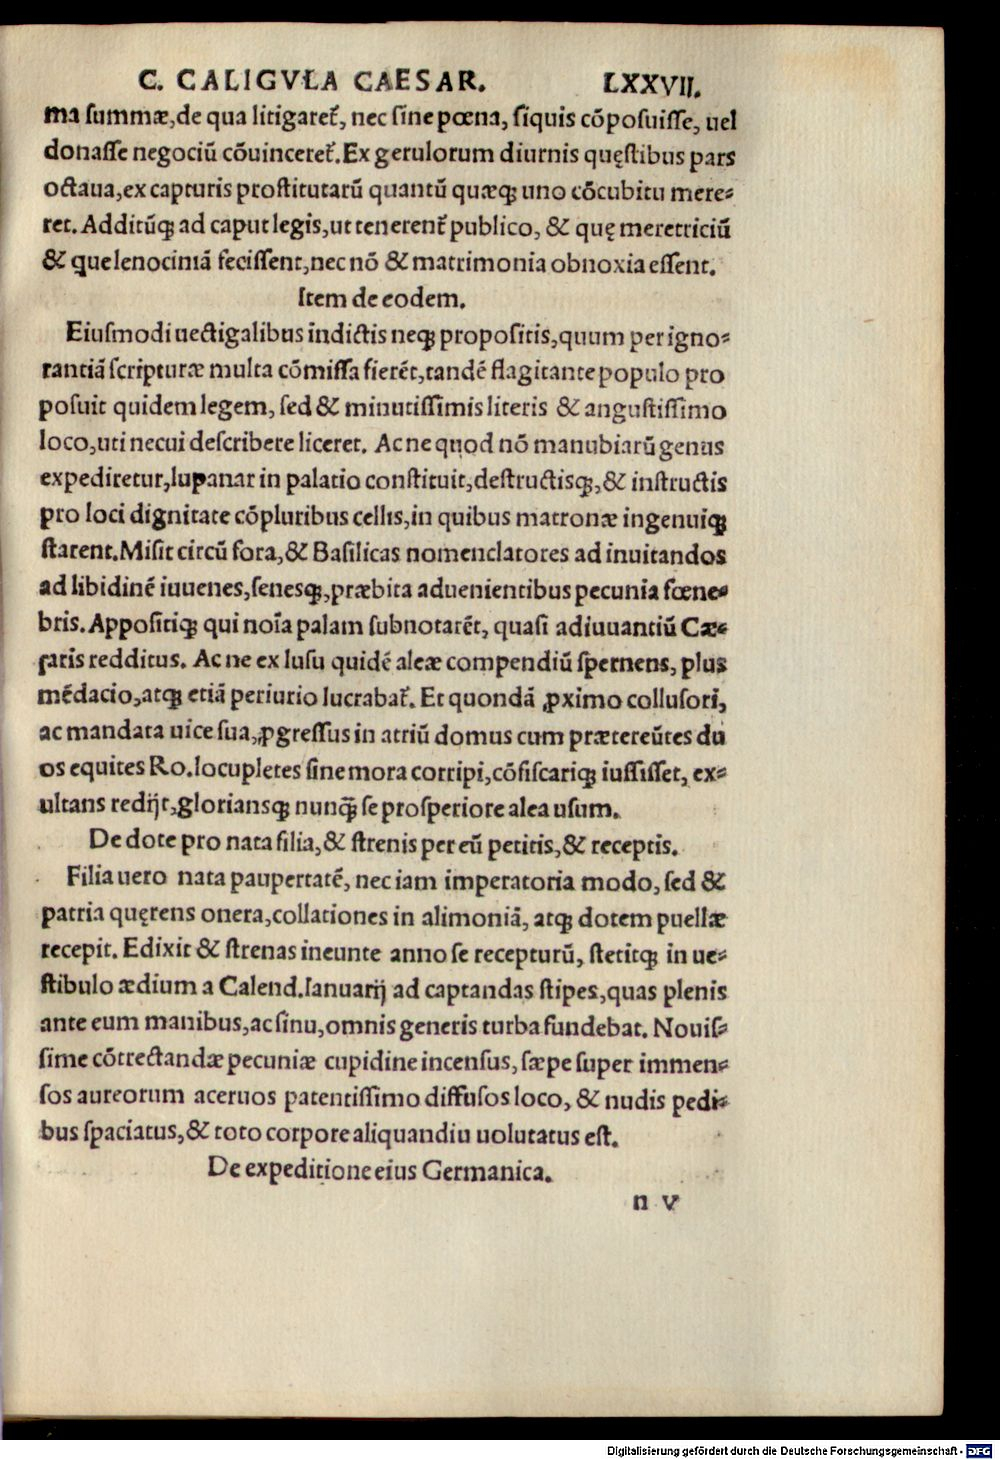 C. CALIGVLA CAESAR. LXXVII.
ma summæ,de qua litigaret᷑, nec sine pœna, siquis cōposuisse, uel
donasse negociū cōuinceret᷑. Ex gerulorum diurnis quęstibus pars
octaua,ex capturis prostitutarū quantū quæqꝫ uno cōcubitu mere⸗
ret. Additūqꝫ ad caput legis,ut tenerent᷑ publico, & quę meretriciū
& que lenociniā fecissent,nec nō & matrimonia obnoxia essent.
Item de eodem.
Eiusmodi uectigalibus indictis neqꝫ propositis,quum per igno⸗
rantiā scripturæ multa cōmissa fierēt,tandē flagitante populo pro
posuit quidem legem, sed & minutissimis literis & angustissimo
loco,uti necui describere liceret. Ac ne quod nō manubiarū genus
expediretur,lupanar in palatio constituit,destructisqꝫ,& instructis
pro loci dignitate cōpluribus cellis,in quibus matronæ ingenuiqꝫ
starent.Misit circū fora,& Basilicas nomenclatores ad inuitandos
ad libidinē iuuenes,senesqꝫ,præbita aduenientibus pecunia fœne⸗
bris. Appositiqꝫ qui noīa palam subnotarēt, quasi adiuuantiū Cæ⸗
saris redditus. Ac ne ex lusu quidē aleæ compendiū spernens, plus
mēdacio,atqꝫ etiā periurio lucrabat᷑. Et quondā ꝓximo collusori,
ac mandata uice sua,ꝓgressus in atriū domus cum prætereūtes du
os equites Ro.locupletes sine mora corripi,cōfiscariqꝫ iussisset, ex⸗
ultans redijt,gloriansqꝫ nunq̄ se prosperiore alea usum.
De dote pro nata filia,& strenis per eū petitis,& receptis.
Filia uero nata paupertatē, nec iam imperatoria modo, sed &
patria quęrens onera,collationes in alimoniā, atqꝫ dotem puellæ
recepit. Edixit & strenas ineunte anno se recepturū, stetitqꝫ in ue⸗
stibulo ædium a Calend.Ianuarij ad captandas stipes,quas plenis
ante eum manibus,ac sinu,omnis generis turba fundebat. Nouis⸗
sime cōtrectandæ pecuniæ cupidine incensus, sæpe super immen⸗
sos aureorum aceruos patentissimo diffusos loco, & nudis pedi⸗
bus spaciatus,& toto corpore aliquandiu uolutatus est.
De expeditione eius Germanica.
n v
Digitalisierung gefördert durch die Deutsche Forschungsgemeinschaft - DFG